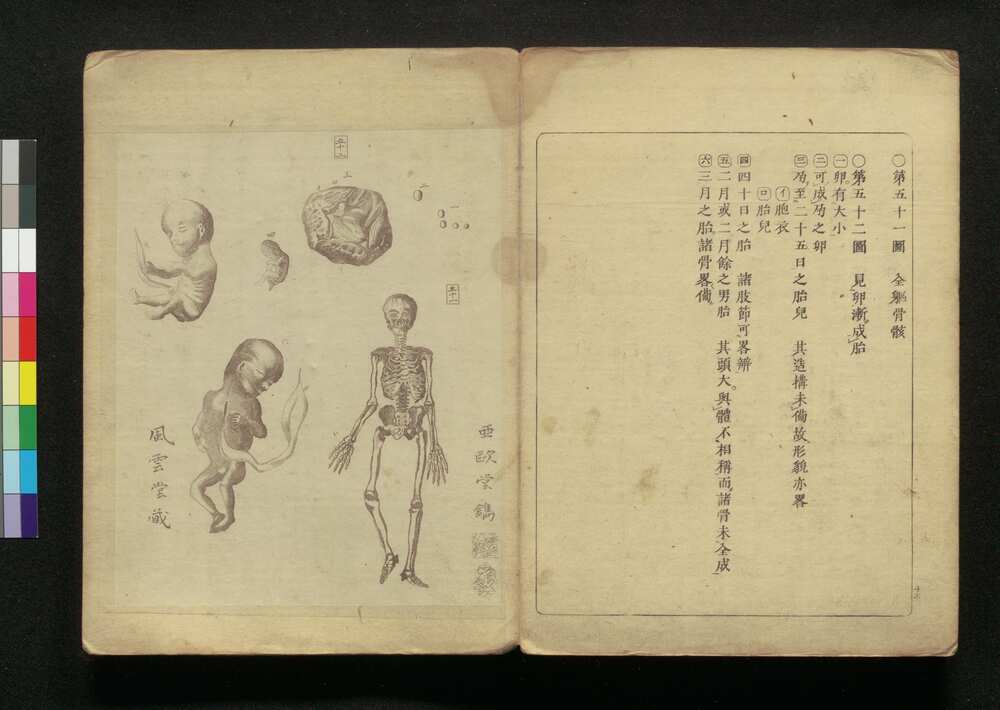 〇第五十一圖　全軀骨骸
〇第五十二圖　見卵漸成胎
一 卵有大小
二 可成㱿之卵
三 㱿至二十五日之胎兒　其造構未備故形貌亦畧
イ 胞衣
ロ 胎兒
四 四十日之胎　諸肢節可畧辨
五 二月或二月餘之男胎　其頭大與體不相稱而諸骨未全成
六 三月之胎諸骨畧備
五十二
五十一
亜欧堂鐫
風雲堂蔵